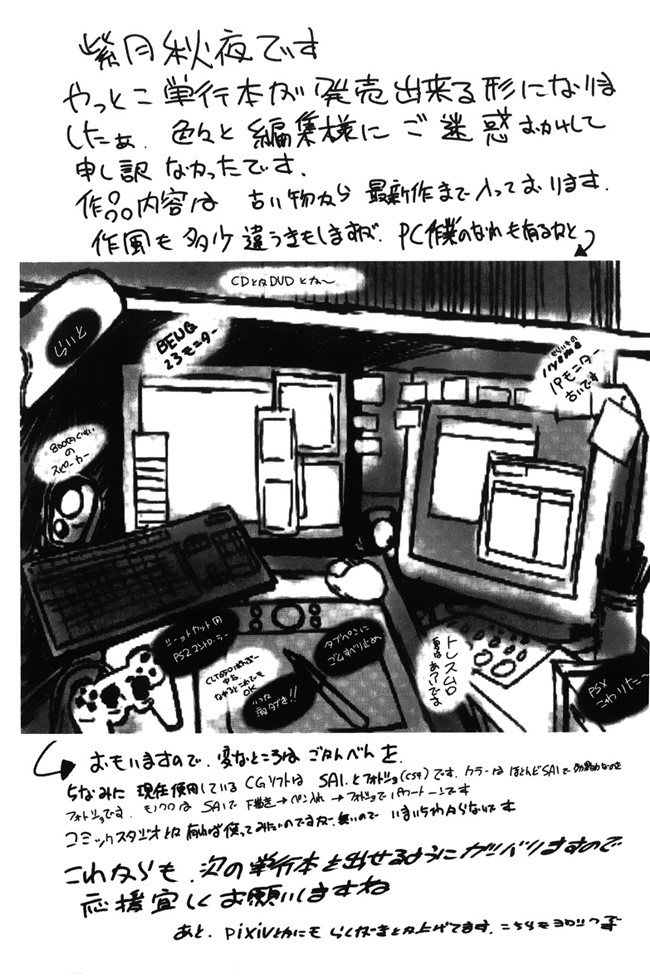 紫月秋夜です
やっとこ単行本が発売出来る形になりま
したぁ．色々と編集様にご迷惑おかけして
申し訳なかったです．
作品内容は 古い物から 最新作まで入っております．
作風も多少違うきもしますが、PC作業のなれも有るかと
CDとかDVDとか〜
らいと
BENQ
23モニター
もらいもの
iiyamaの
19モニター
古いです
800円くらい
の
スピーカー
ショートカット用
PS2コントローラー
タブペンに
ゴムすべり止め
OK
いった
トレスムロ
夏はあついでよ
PSX
こわりた〜
おもいますので、変なところは ごかんべんを．
ちなみに 現在使用しているCGソフトは SAI．とフォトショ(CS4)です．カラーは ほとんどSAIで 効果的なのを
フォトショです．モノクロは SAIで下描き→ペン入れ→フォトショでトーンです
コミックスタジオとか 有れば使ってみたいのですが、無いので いまいちわからないです
これからも、次の単行本を出せるようにガンバリますので
応援宜しくお願いしますね
あと．pixivとかにも らくがきとか上げてます．こちらもヨロシクです